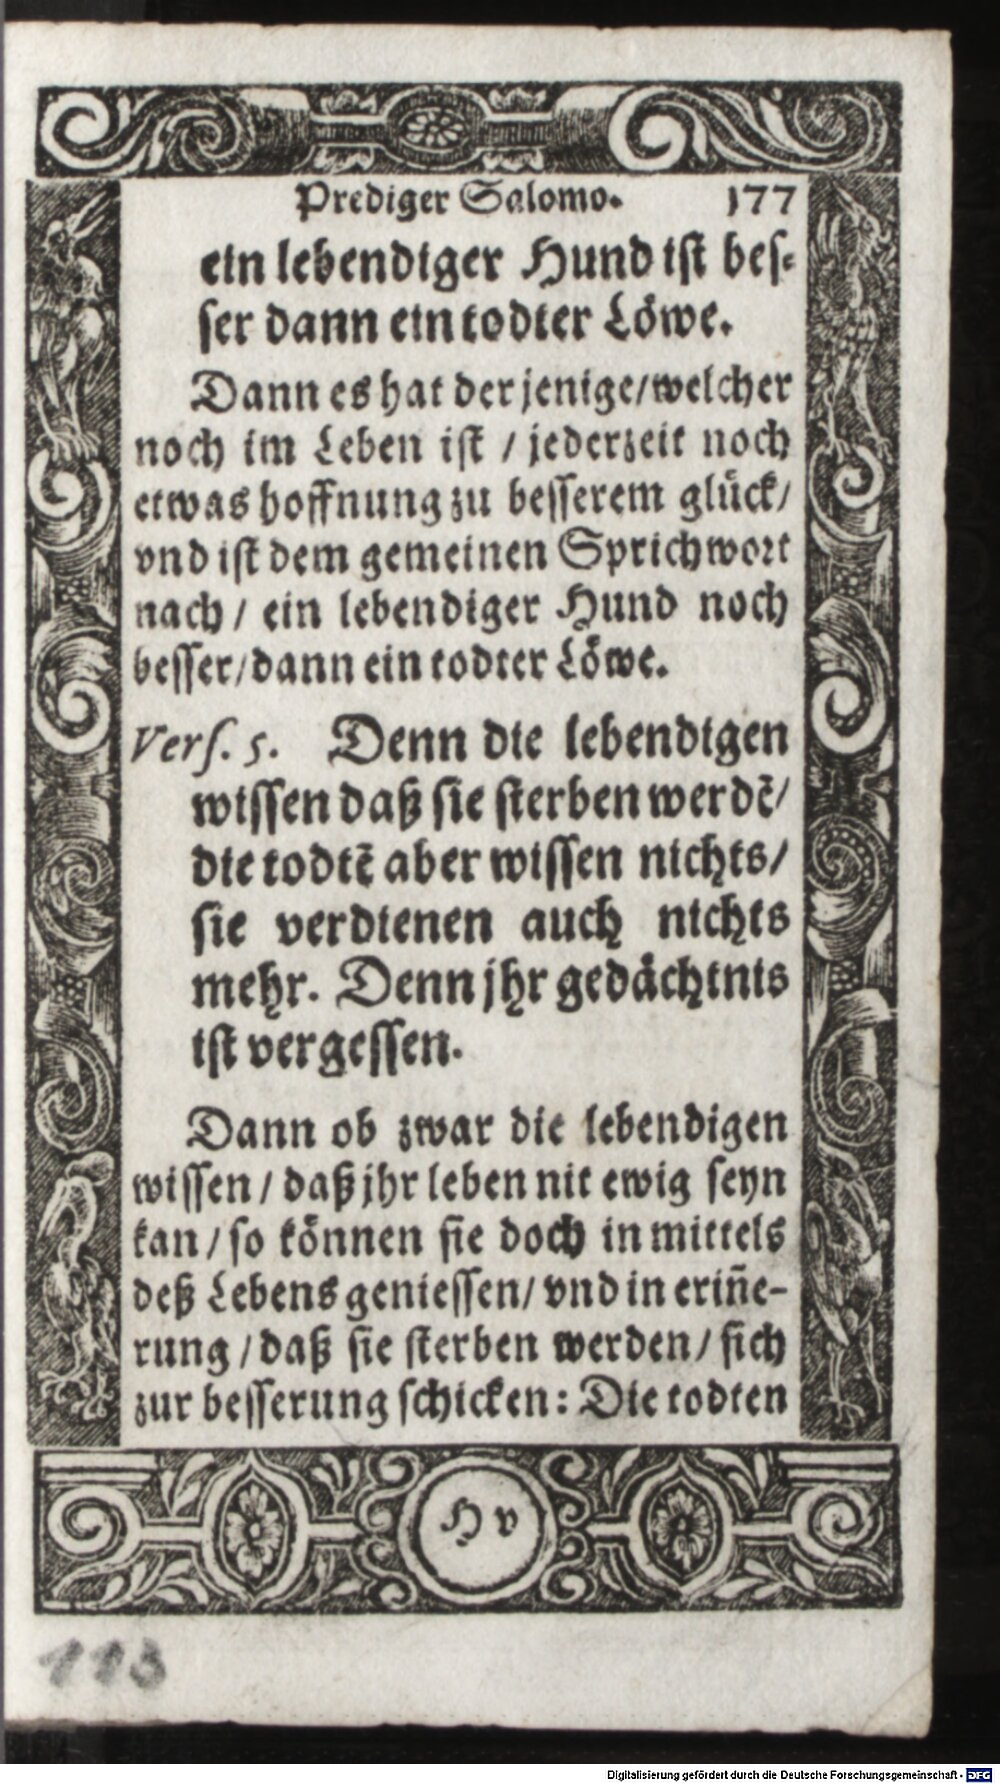 Prediger Salomo. 177
ein lebendiger Hund ist bes-
ser dann ein todter Löwe.
Dann es hat der jenige/welcher
noch im Leben ist / jederzeit noch
etwas hoffnung zu besserem glück/
vnd ist dem gemeinen Sprichwort
nach/ ein lebendiger Hund noch
besser/dann ein todter Löwe.
Vers. 5. Denn die lebendigen
wissen daß sie sterben werdẽ/
die todtẽ aber wissen nichts/
sie verdienen auch nichts
mehr. Denn jhr gedächtnis
ist vergessen.
Dann ob zwar die lebendigen
wissen/ daß jhr leben nit ewig seyn
kan/ so können sie doch in mittels
deß Lebens geniessen/ vnd in eriñe-
rung/daß sie sterben werden/ sich
zur besserung schicken: Die todten
H v
113
Digitalisierung gefördert durch die Deutsche Forschungsgemeinschaft - DFG